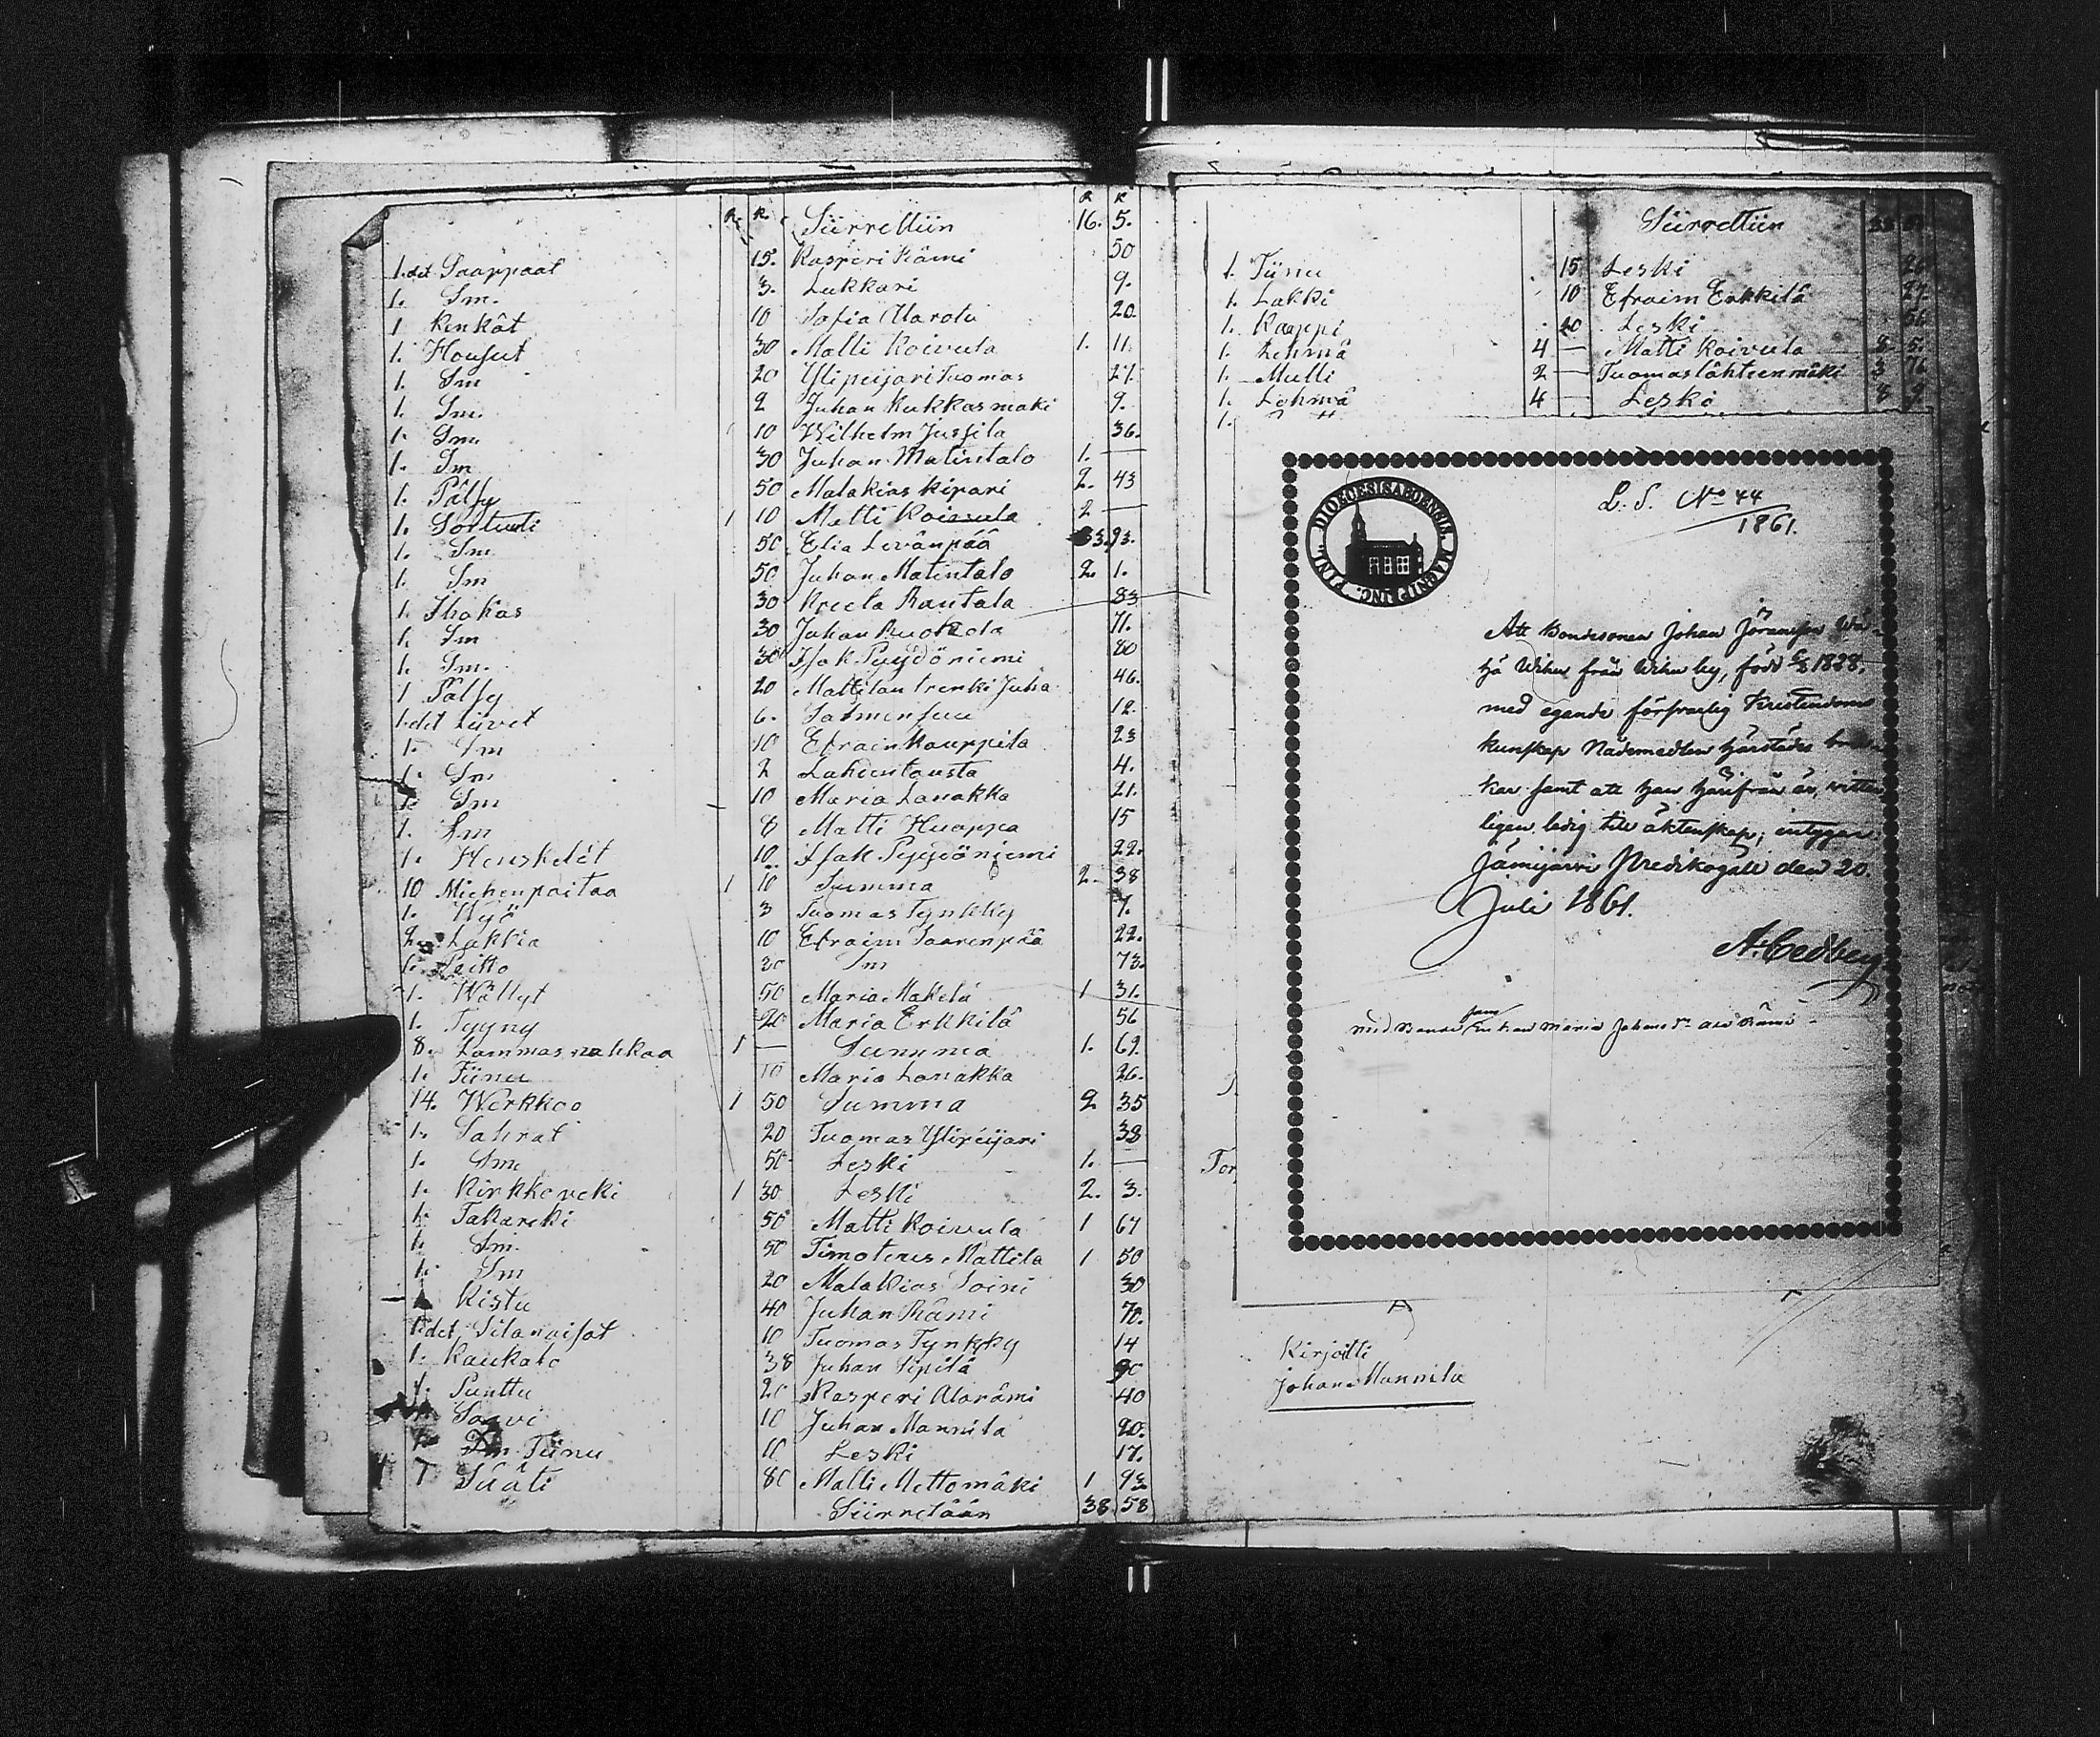 R. K. Siirrettiin R K 16. 5.
1. det Saappaat 15. Kasperi Rämi 50
1. Sm. 3. Lukkari 9.
1 Kenkät 10 Sofia Alarotu 20.
1. Housut 30 Matti Koivula 1. 11
1. Sm 20 Ylipeijari Tuomas 27.
1. Sm. 2 Juhan Kukkasmäki 9.
1. Sm. 10 Wilhelm Jussila 36.
1. Sm 30 Juhan Matintalo 1. —
1. Pälsy 50 Malakias Kipari 2. 43
1. Sortuuti 1 10 Matti Koivula 2 —
1. Sm 50 Elia Levänpää 3. 93.
1. Sm 50 Juhan Matintalo 2. 1.
1. Ihokas 30 Kreeta Rantala 83
1. Sm 30 Juhan Ruokola 71.
1. Sm. 30 Isak Pyydöniemi 80
1 Pälsy 20 Mattilan trenki Juha 46.
1. det Liivet 6. Salmensuu 12.
1. Sm 10 Efraim Kauppila 23
1. Sm 2 Lahdentausta 4.
1. Sm 10 Maria Lanakka 21.
1. Sm 8 Matti Huappa 15
1. Henskelët 10. Isak Pyydöniemi 22.
10 Miehenpaitaa 1 10 Summa 2. 38
1. Wyö 3 Tuomas Tynkky 7.
2. Lakkia 10 Efraim Saarenpää 22.
1. Peitto 30 Sm 73.
1. Wällyt 50 Maria Mäkelä 1 31.
1. Tyyny 20 Maria Erkkilä 56
8. Lammasnahkaa 1 — Summa 1. 69.
1. Tiinu 10 Maria Lanakka 26.
14. Werkkoo 1 50 Summa 2 35
1. Sahrat 20 Tuomas Ylipeijari 38
1. Sm 50 Leski 1. —
1. Kirkkoreki 1 30 Leski 2. 3.
1. Takareki 50 Matti Koivula 1 67
1. Sm. 50 Timoteus Mattila 1 50
1. Sm 20 Malakias Soini 30
1 Kistu 40 Juhan Rämi 70.
1. det Silanaisat 10 Tuomas Tynkky 14
1. Kaukalo 38 Juhan Sipilä 90
1. Punttu 20 Kasperi Alarämi 40
Saavi 10 Juhan Mannila 20.
Sm. Tiinu 10 Leski 17.
1 Sääli 80 Matti Mettomäki 1 93
Siirretään 38. 58
Siirrettiin 38 58
1. Tiinu 15 Leski 26
1. Lakki 10 Efraim Erkkilä 27.
1. Kaappi 40 Leski 56
1. Lehmä 4 — Matti Koivula 8 5.
1. Mulli 2 — Tuomas Lähteenmäki 3 76
1. Lehmä 4 — Leski 8 9
1.
DIOECESIS ABOENSIS MAGNI PRINC. FINL.
L. S. No 44
1861.
Att Bondesonen Johan Jöransson
från by, född 1828.
med egande försvarlig Kristendoms
kunskap Nådemedlen härstädes
kar samt att han härifrån är, vitter-
ligen ledig till äktenskap; intygar.
Jämijärvi Predikogäll den 20.
Juli 1861.
A. Cedberg
Tor
Kirjoitti
Johan Mannila